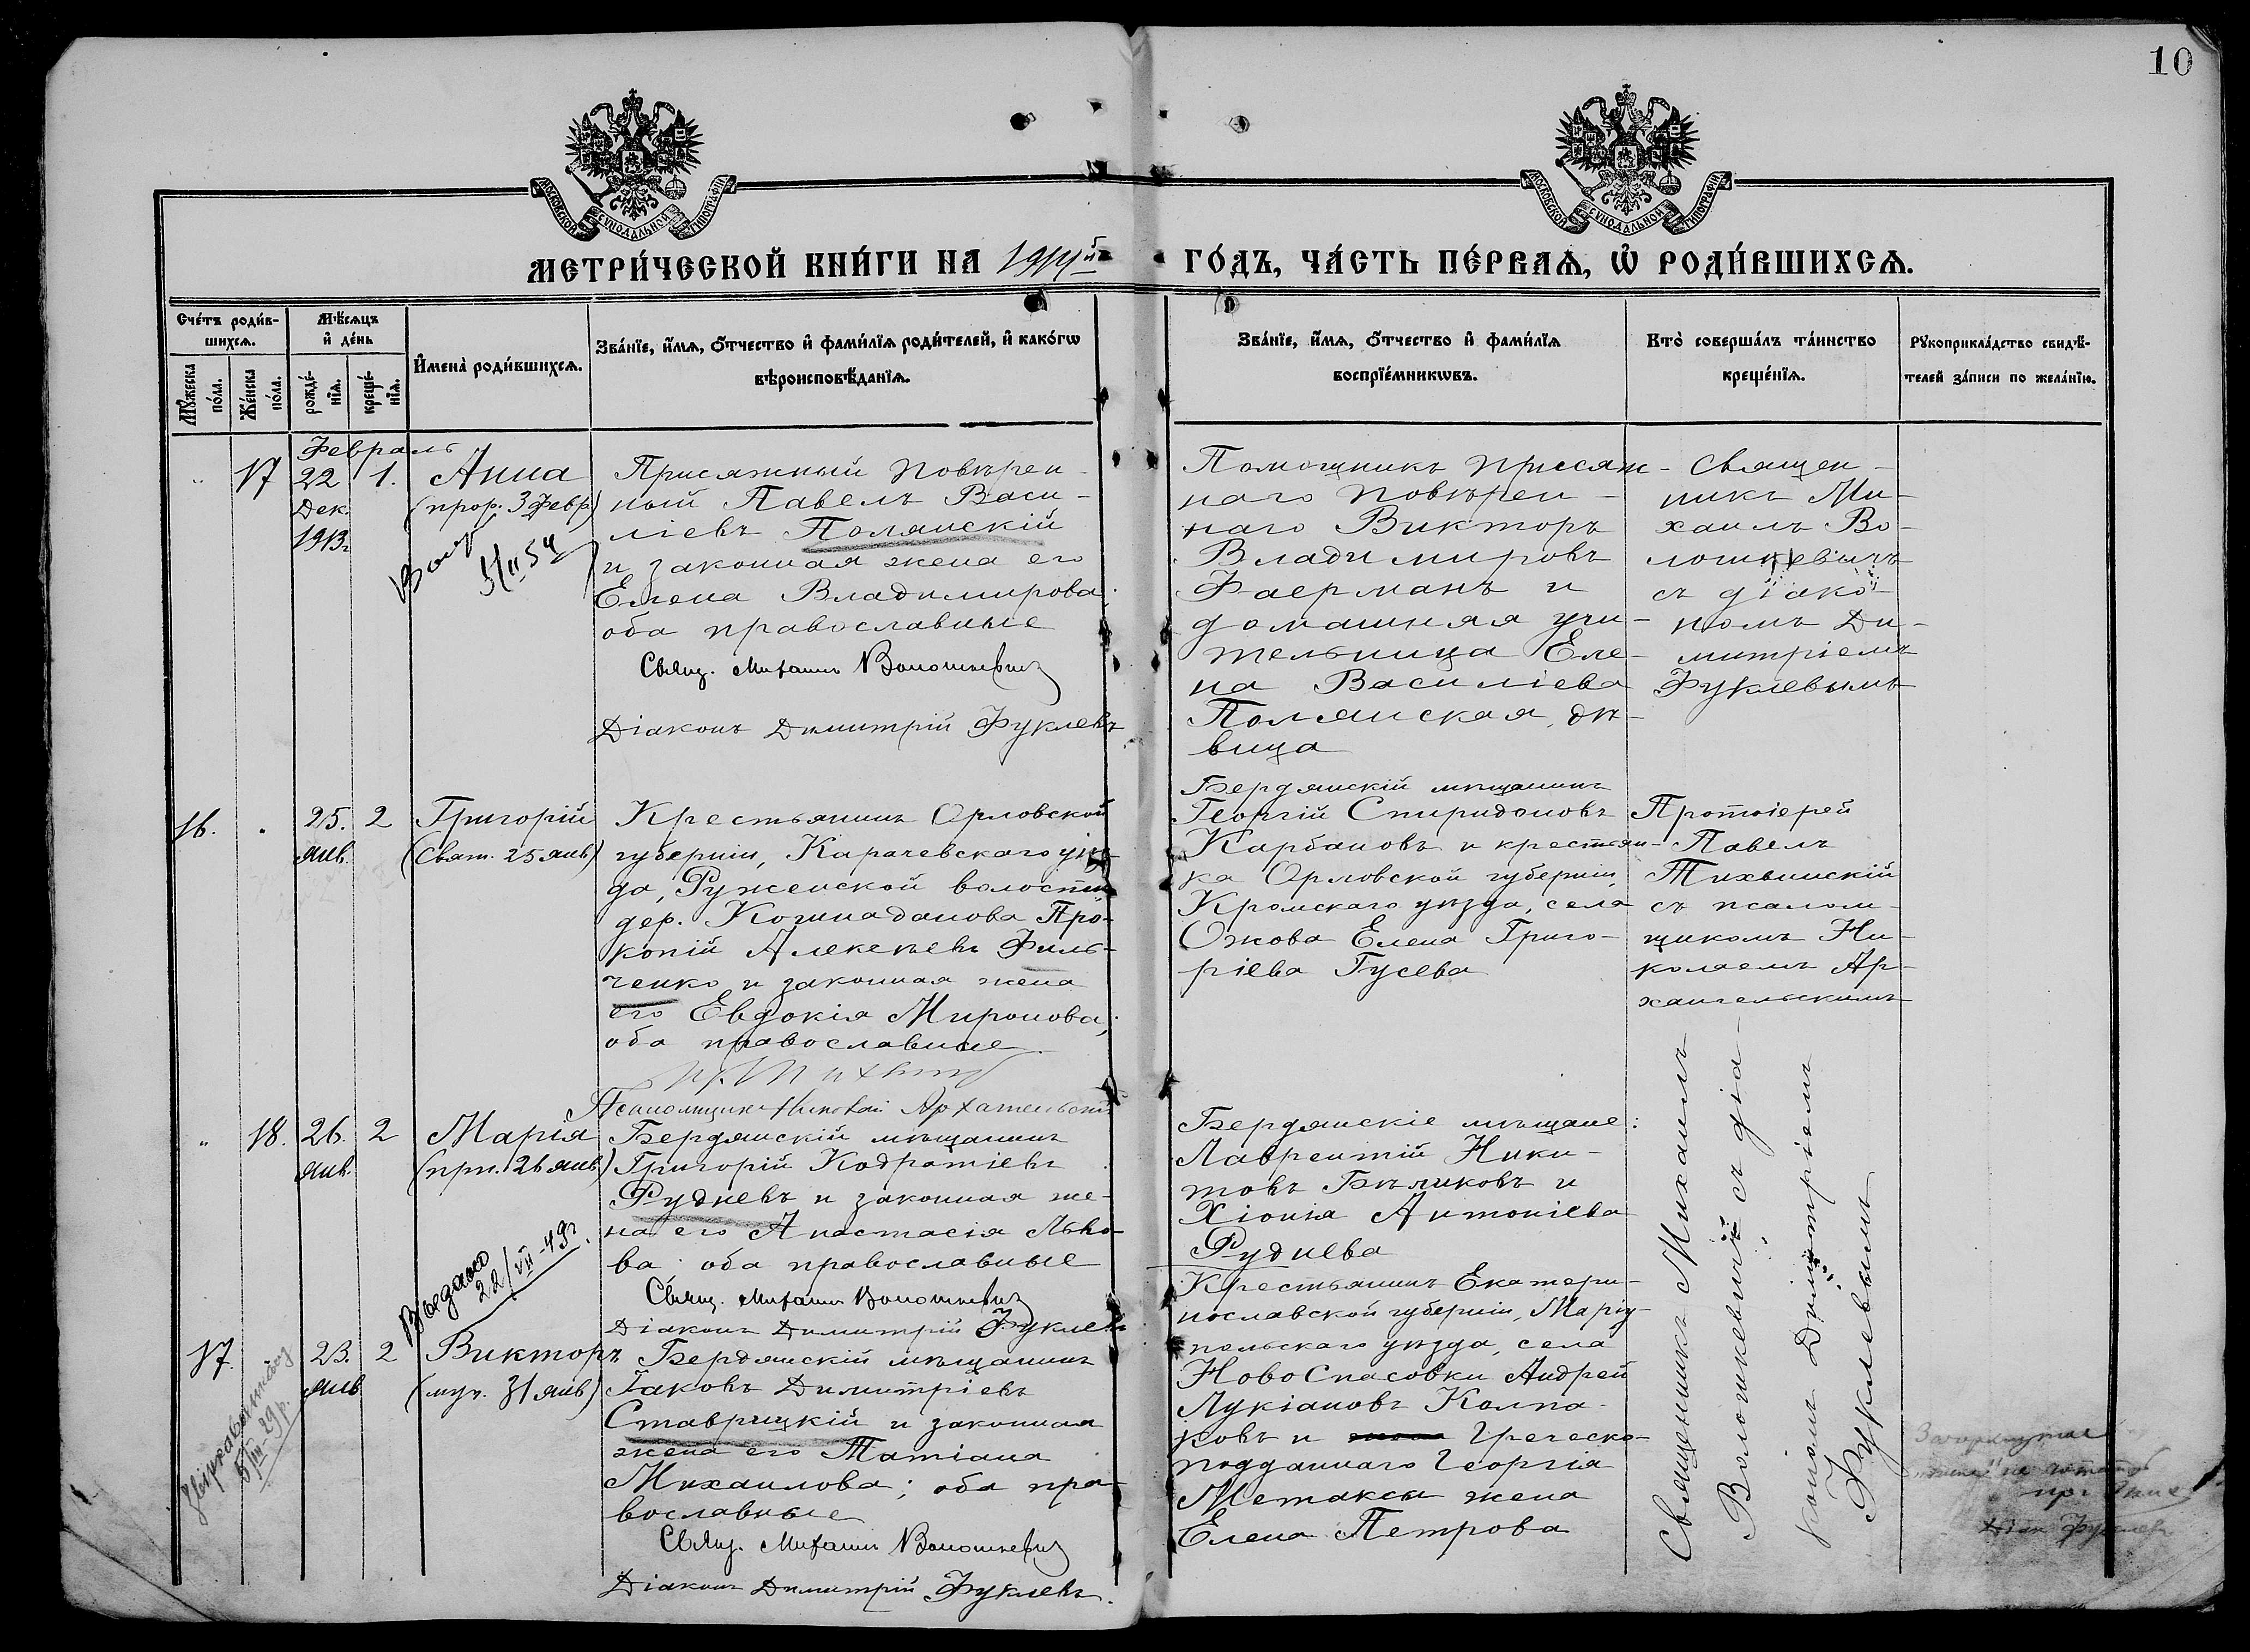 10
МОСКОВСКОЙ СУНОДАЛЬНОЙ ТИПОГРАФІИ
МОСКОВСКОЙ СУНОДАЛЬНОЙ ТИПОГРАФІИ
МЕТРИ́ЧЕСКОЙ КНИ́ГИ НА 1914й
ГО́ДЪ, ЧА́СТЬ ПЕ́РВАѦ, Ѡ РОДИ́ВШИХСѦ.
Сче́тъ роди́в-
шихсѧ.
Мꙋ́жеска по́ла.
Же́нска по́ла.
Мѣ́сѧцъ
и҆ де́нь
рожде́-
нїѧ.
креще́-
нїѧ.
И҆мена̀ роди́вшихсѧ.
Зва́нїе, и҆́мѧ, ѻ҆́тчество и҆ фами́лїѧ роди́телей, и҆ како́гѡ
вѣроисповѣ́данїѧ.
Зва́нїе, и҆́мѧ, ѻ҆́тчество и҆ фами́лїѧ
воспрїе́мникѡвъ.
Кто̀ соверша́лъ та́инство
креще́нїѧ.
Рꙋкоприкла́дство свидѣ́-
телей за́писи по жела́нїю.
Февраль
" 17 22 Дек. 1913г. 1. Анна
(прор. 3 февр)
5/II 54
Присяжный повѣрен-
ный Павелъ Васи-
ліевъ Полянскій
и законная жена его
Елена Владимирова;
оба православные
Свящ. Михаилъ Волошкевичъ
Діаконъ Димитрій Фуклевъ
Помощникъ присяж-
наго повѣрен-
наго Викторъ
Владимировъ
Фаерманъ и
домашняя учи-
тельница Еле-
на Василіева
Полянская, дѣ-
вица
Священ-
никъ Ми-
хаилъ Во-
лошкевичъ
съ діако-
номъ Ди-
митріемъ
Фуклевымъ
16. " 25. янв. 2 Григорій
(Свят. 25 янв)
Крестьянинъ Орловской
губерніи, Карачевскаго уѣз-
да, Руженской волости
дер. Прo-
копій Алексѣевъ Филь-
ченко и законная жена
его Евдокія Миронова;
оба православные
Псаломщикъ Николай Архангельскій
Бердянскій мѣщанинъ
Георгій Спиридоновъ
Карбановъ и крестьян-
ка Орловской губерніи,
Кромскаго уѣзда, села
Ожова Елена Григо-
ріева Гусева
Протоіерей
Павелъ
Тихвинскій
съ псалом-
щикомъ Ни-
колаемъ Ар-
хангельскимъ
" 18. 26. янв. 2 Марія
(прп. 26 янв)
Выдано
22/VII-49г.
Бердянскій мѣщанинъ
Григорій Кодратіевъ
Рудневъ и законная же-
на его Анастасія Льво-
ва; оба православные
Свящ. Михаилъ Волошкевичъ
Діаконъ Димитрій Фуклевъ
Бердянскіе мѣщане:
Лаврентій Ники-
товъ Бѣликовъ и
Хіонія Антоніева
Руднева
17. 23. янв 2 Викторъ
(муч. 31 янв)
5/III-29р.
Бердянскій мѣщанинъ
Іаковъ Димитріевъ
Ставрицкій и законная
жена его Татіана
Михаилова; оба пра-
вославные
Свящ. Михаилъ Волошкевичъ
Діаконъ Димитрій Фуклевъ.
Крестьянинъ Екатери-
нославской губерніи, Маріу-
польскаго уѣзда, села
НовоСпасовки Андрей
Лукіановъ Колпа-
ковъ и Греческо-
подданнаго Георгія
Метакса жена
Елена Петрова
Священникъ Михаилъ
Волошкевичъ съ діа-
кономъ Димитріемъ
Фуклевымъ
Діак. Фуклевъ